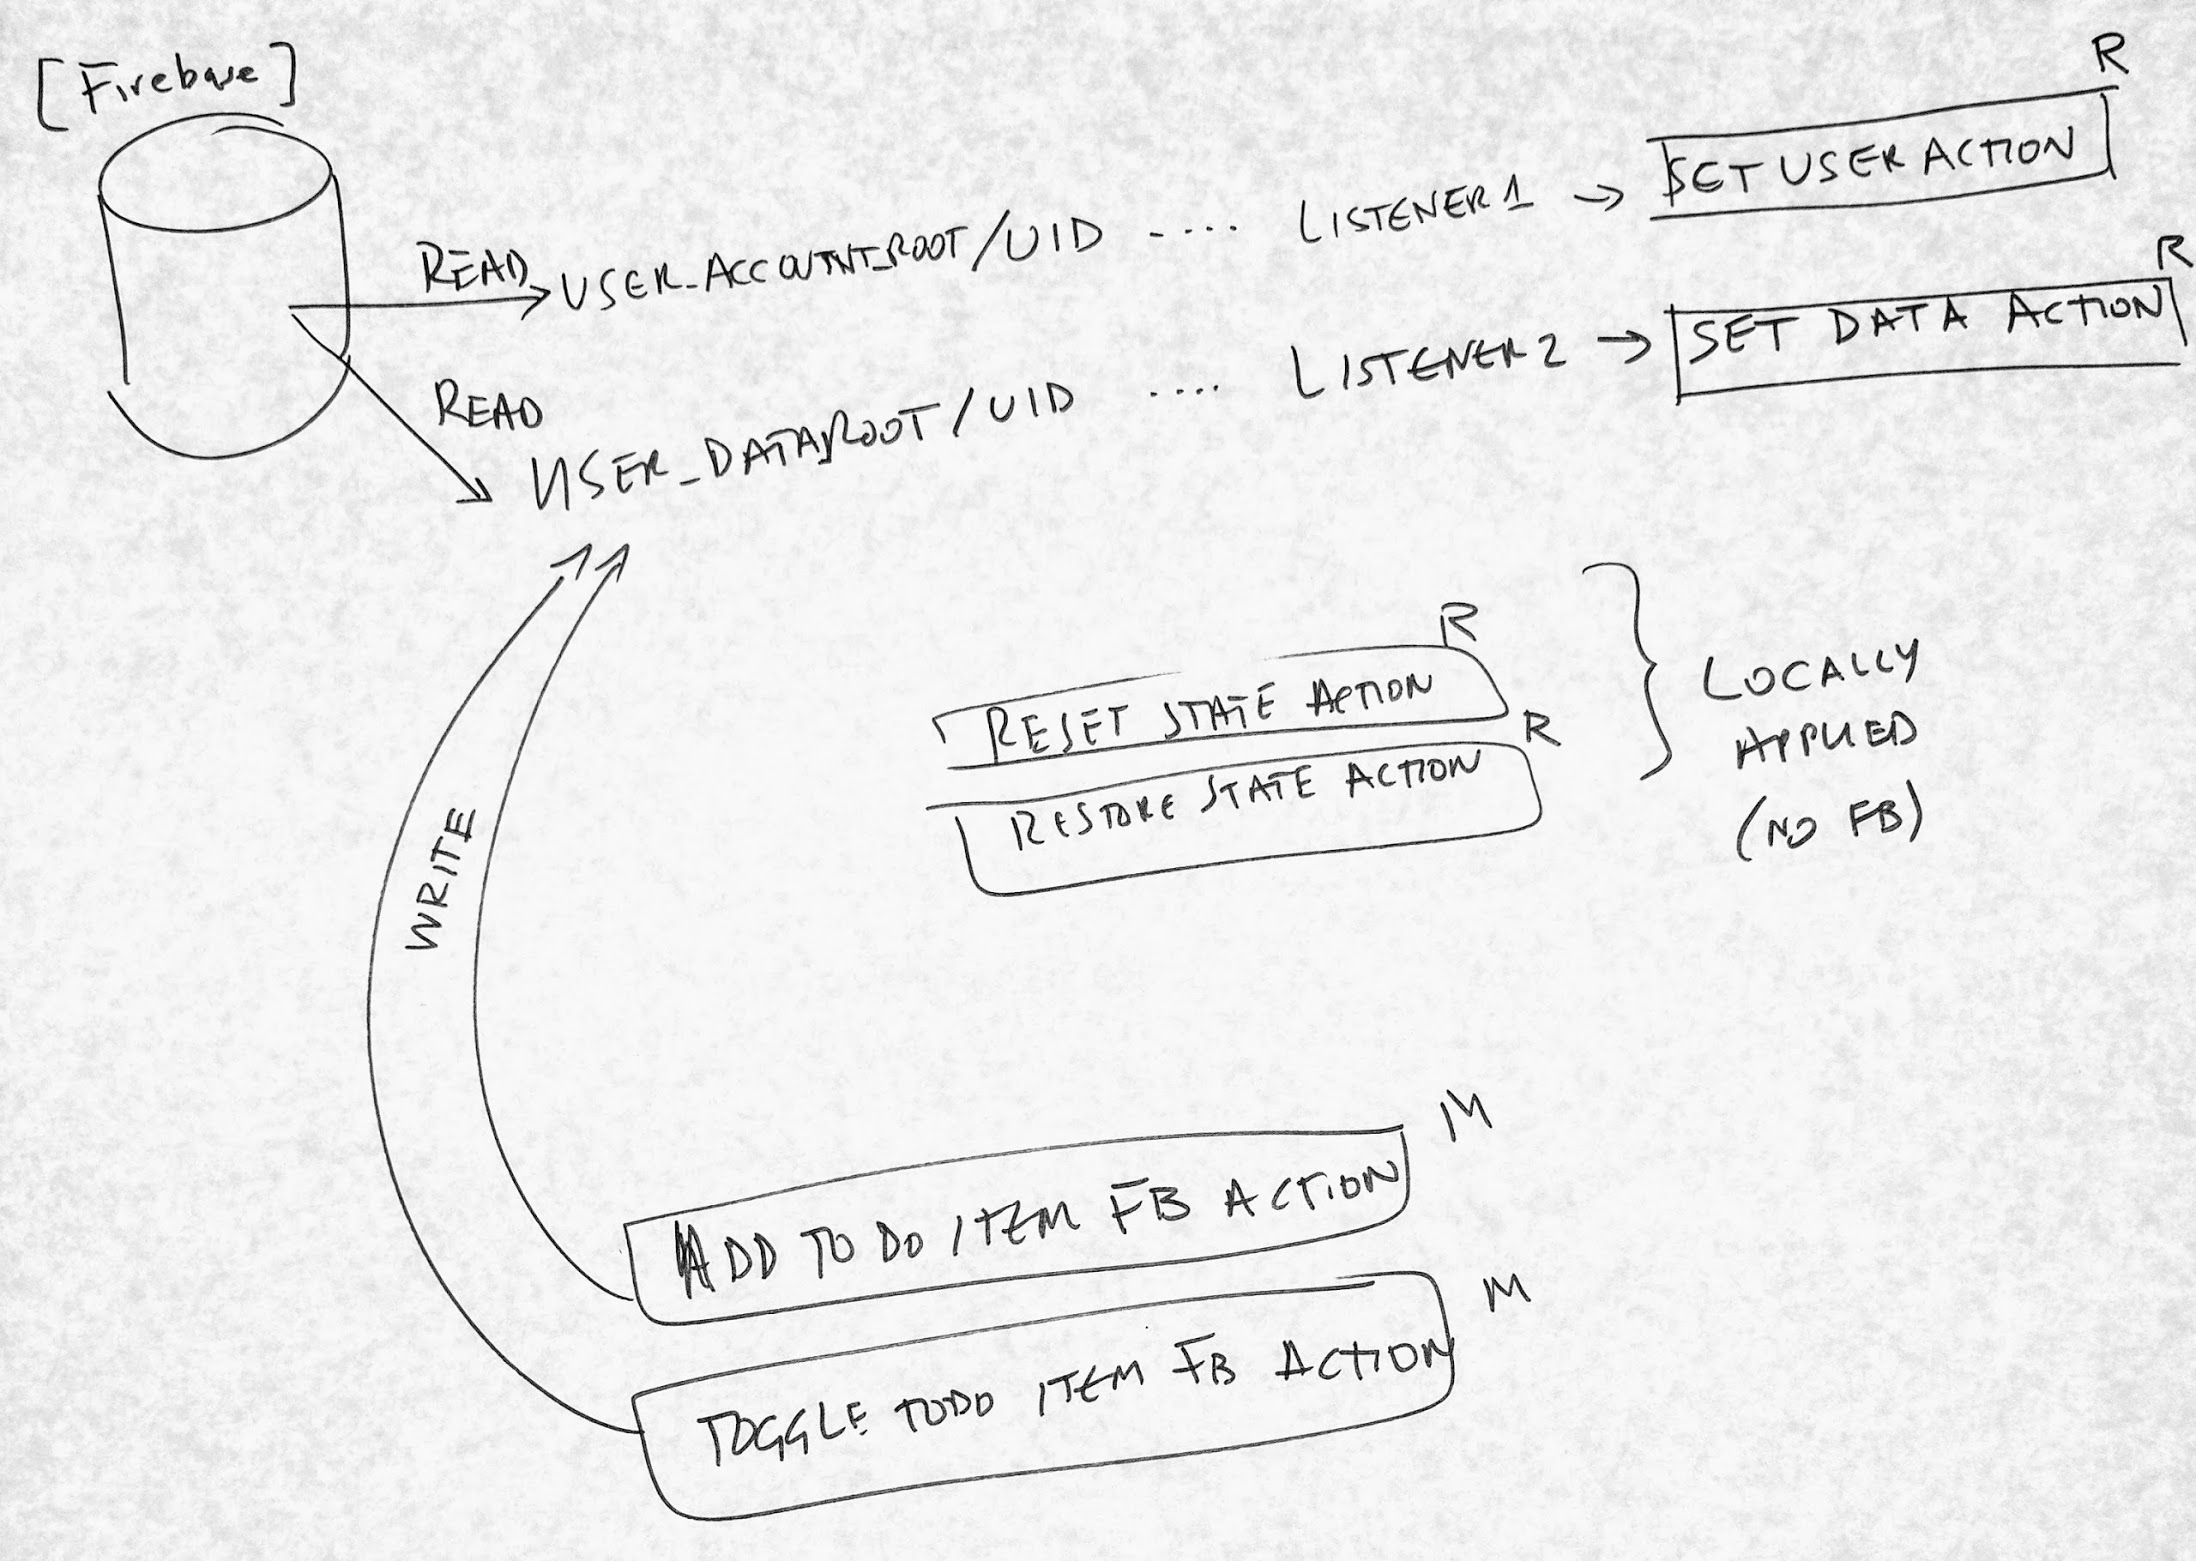 [Firebase]
R
READ USER_ACCOUNT_ROOT/UID .... LISTENER 1 → SET USER ACTION
R
READ
USER_DATA_ROOT/UID .... LISTENER 2 → SET DATA ACTION
R
RESET STATE ACTION
R
RESTORE STATE ACTION
LOCALLY
APPLIED
(NO FB)
WRITE
M
ADD TO DO ITEM FB ACTION
M
TOGGLE TODO ITEM FB ACTION